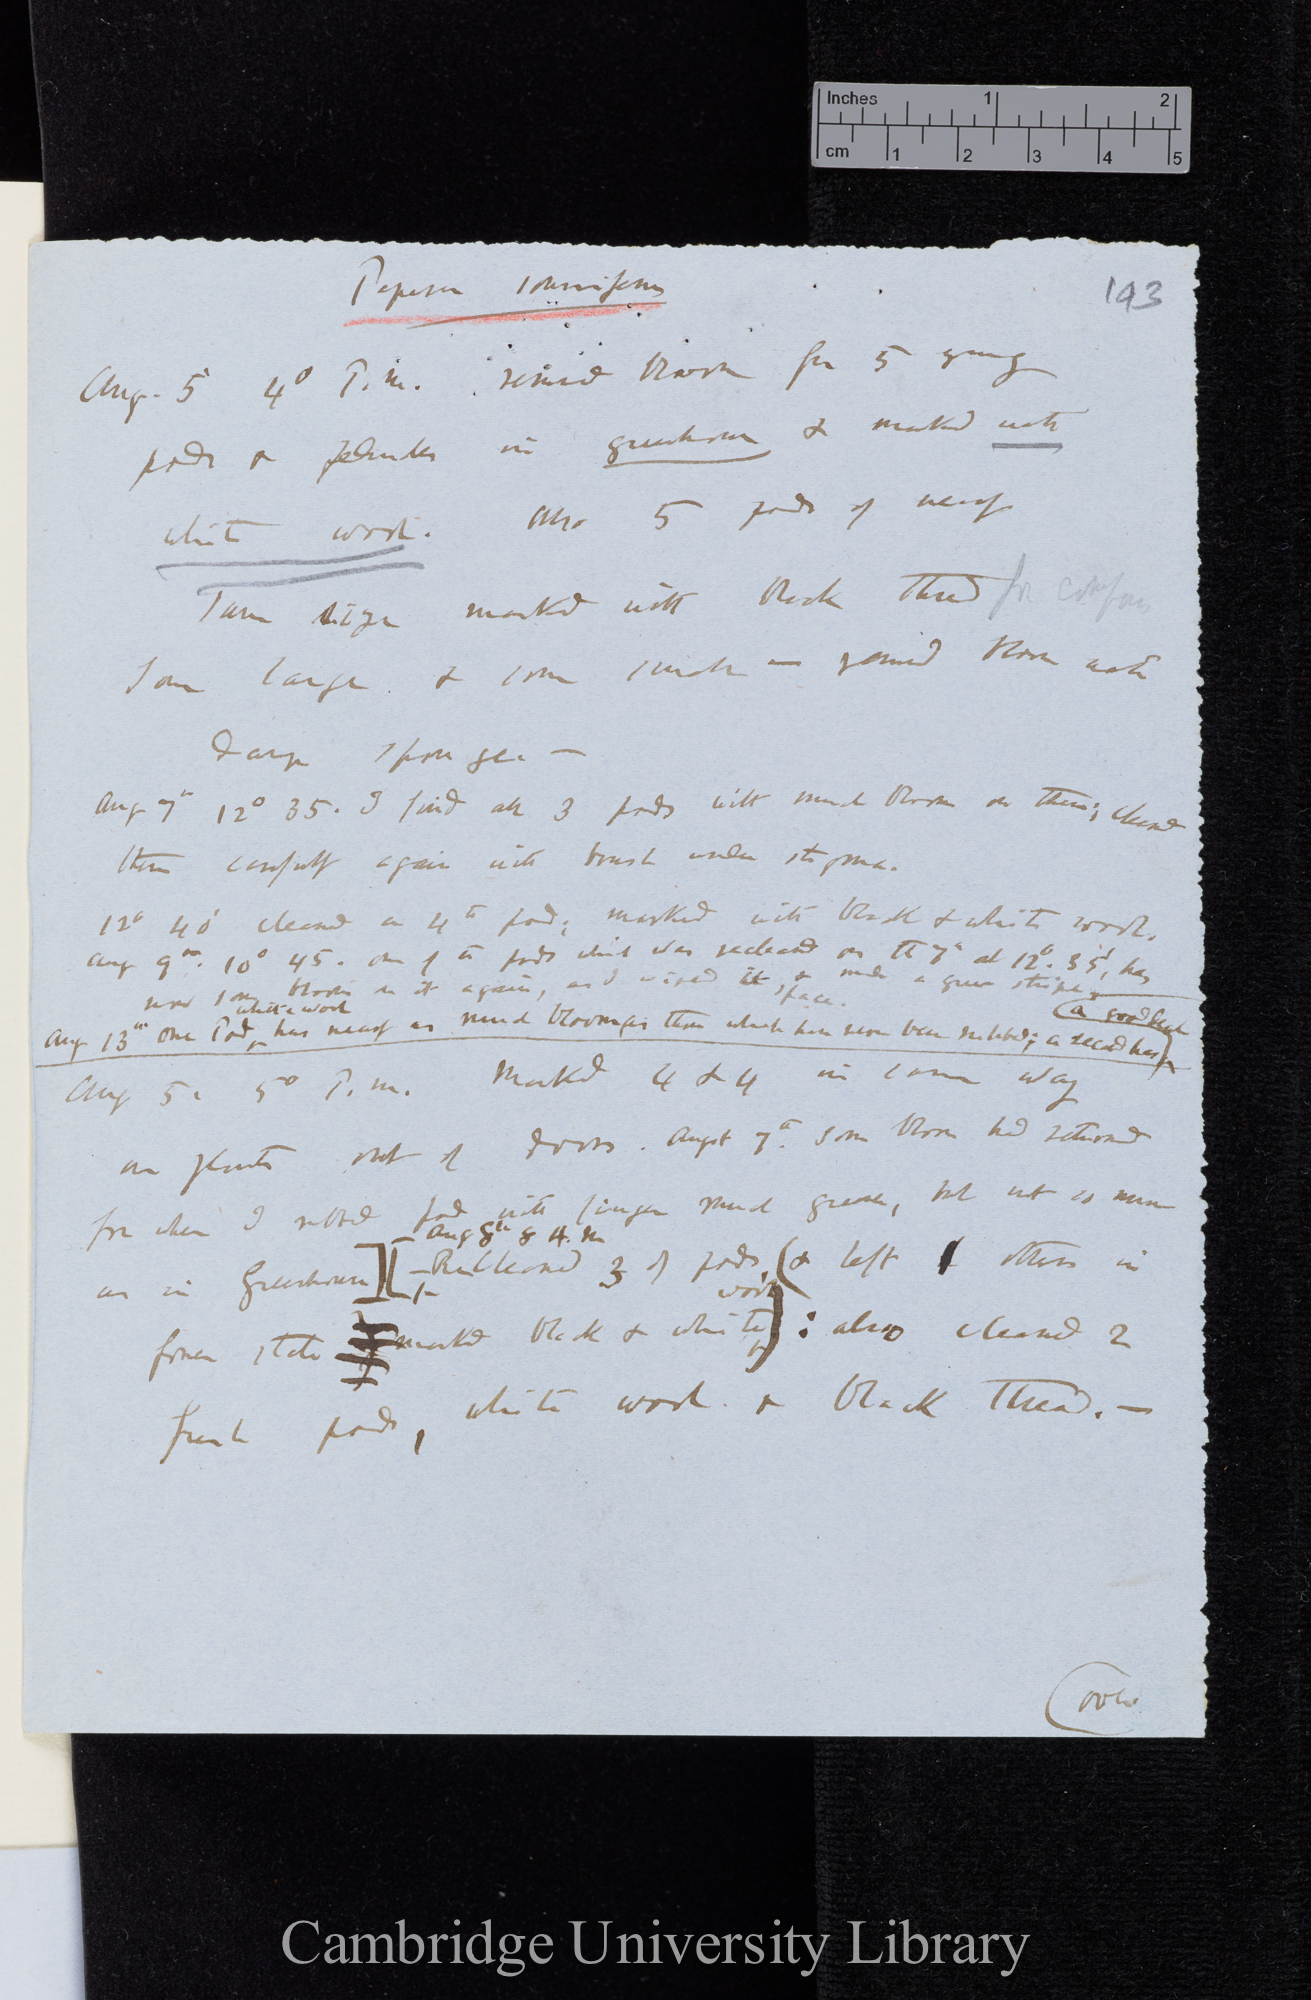 Inches 1 2
cm 1 2 3 4 5
Papaver somniferum
193
Aug. 5 4° P.m. removed bloom from 5 young
pods on plants in greenhouse & marked with
white wool. Also 5 pods of nearly
same size marked with black thread for comparison
some large & some small — removed bloom with
damp sponge. —
Aug 7th 12° 35. I find all 3 pods with much bloom on them; cleaned
them carefully again with brush under stigma.
12° 40' cleaned a 4th pod; marked with black & white wool.
Aug 9th. 10° 45. one of the pods which was recleaned on the 7th at 12°. 35', has
now some bloom on it again, as I wiped it, & made a green stripe
space.
white wool
(a good deal
Aug 13th one Pod, has nearly as much bloom as those which have never been rubbed; a second has
Aug 5. 5° P.m. Marked 4 & 4 in same way
on plants out of doors. Augst 7th. some bloom had returned
for when I rubbed pod with finger much greener, but not so much
Aug 8th 8 A.m
as in Greenhouse] [— Recleaned 3 of pods, (& left 1 others in
wool
former state marked black & white): also cleaned 2
fresh pods, white wool & black thread. —
over
Cambridge University Library